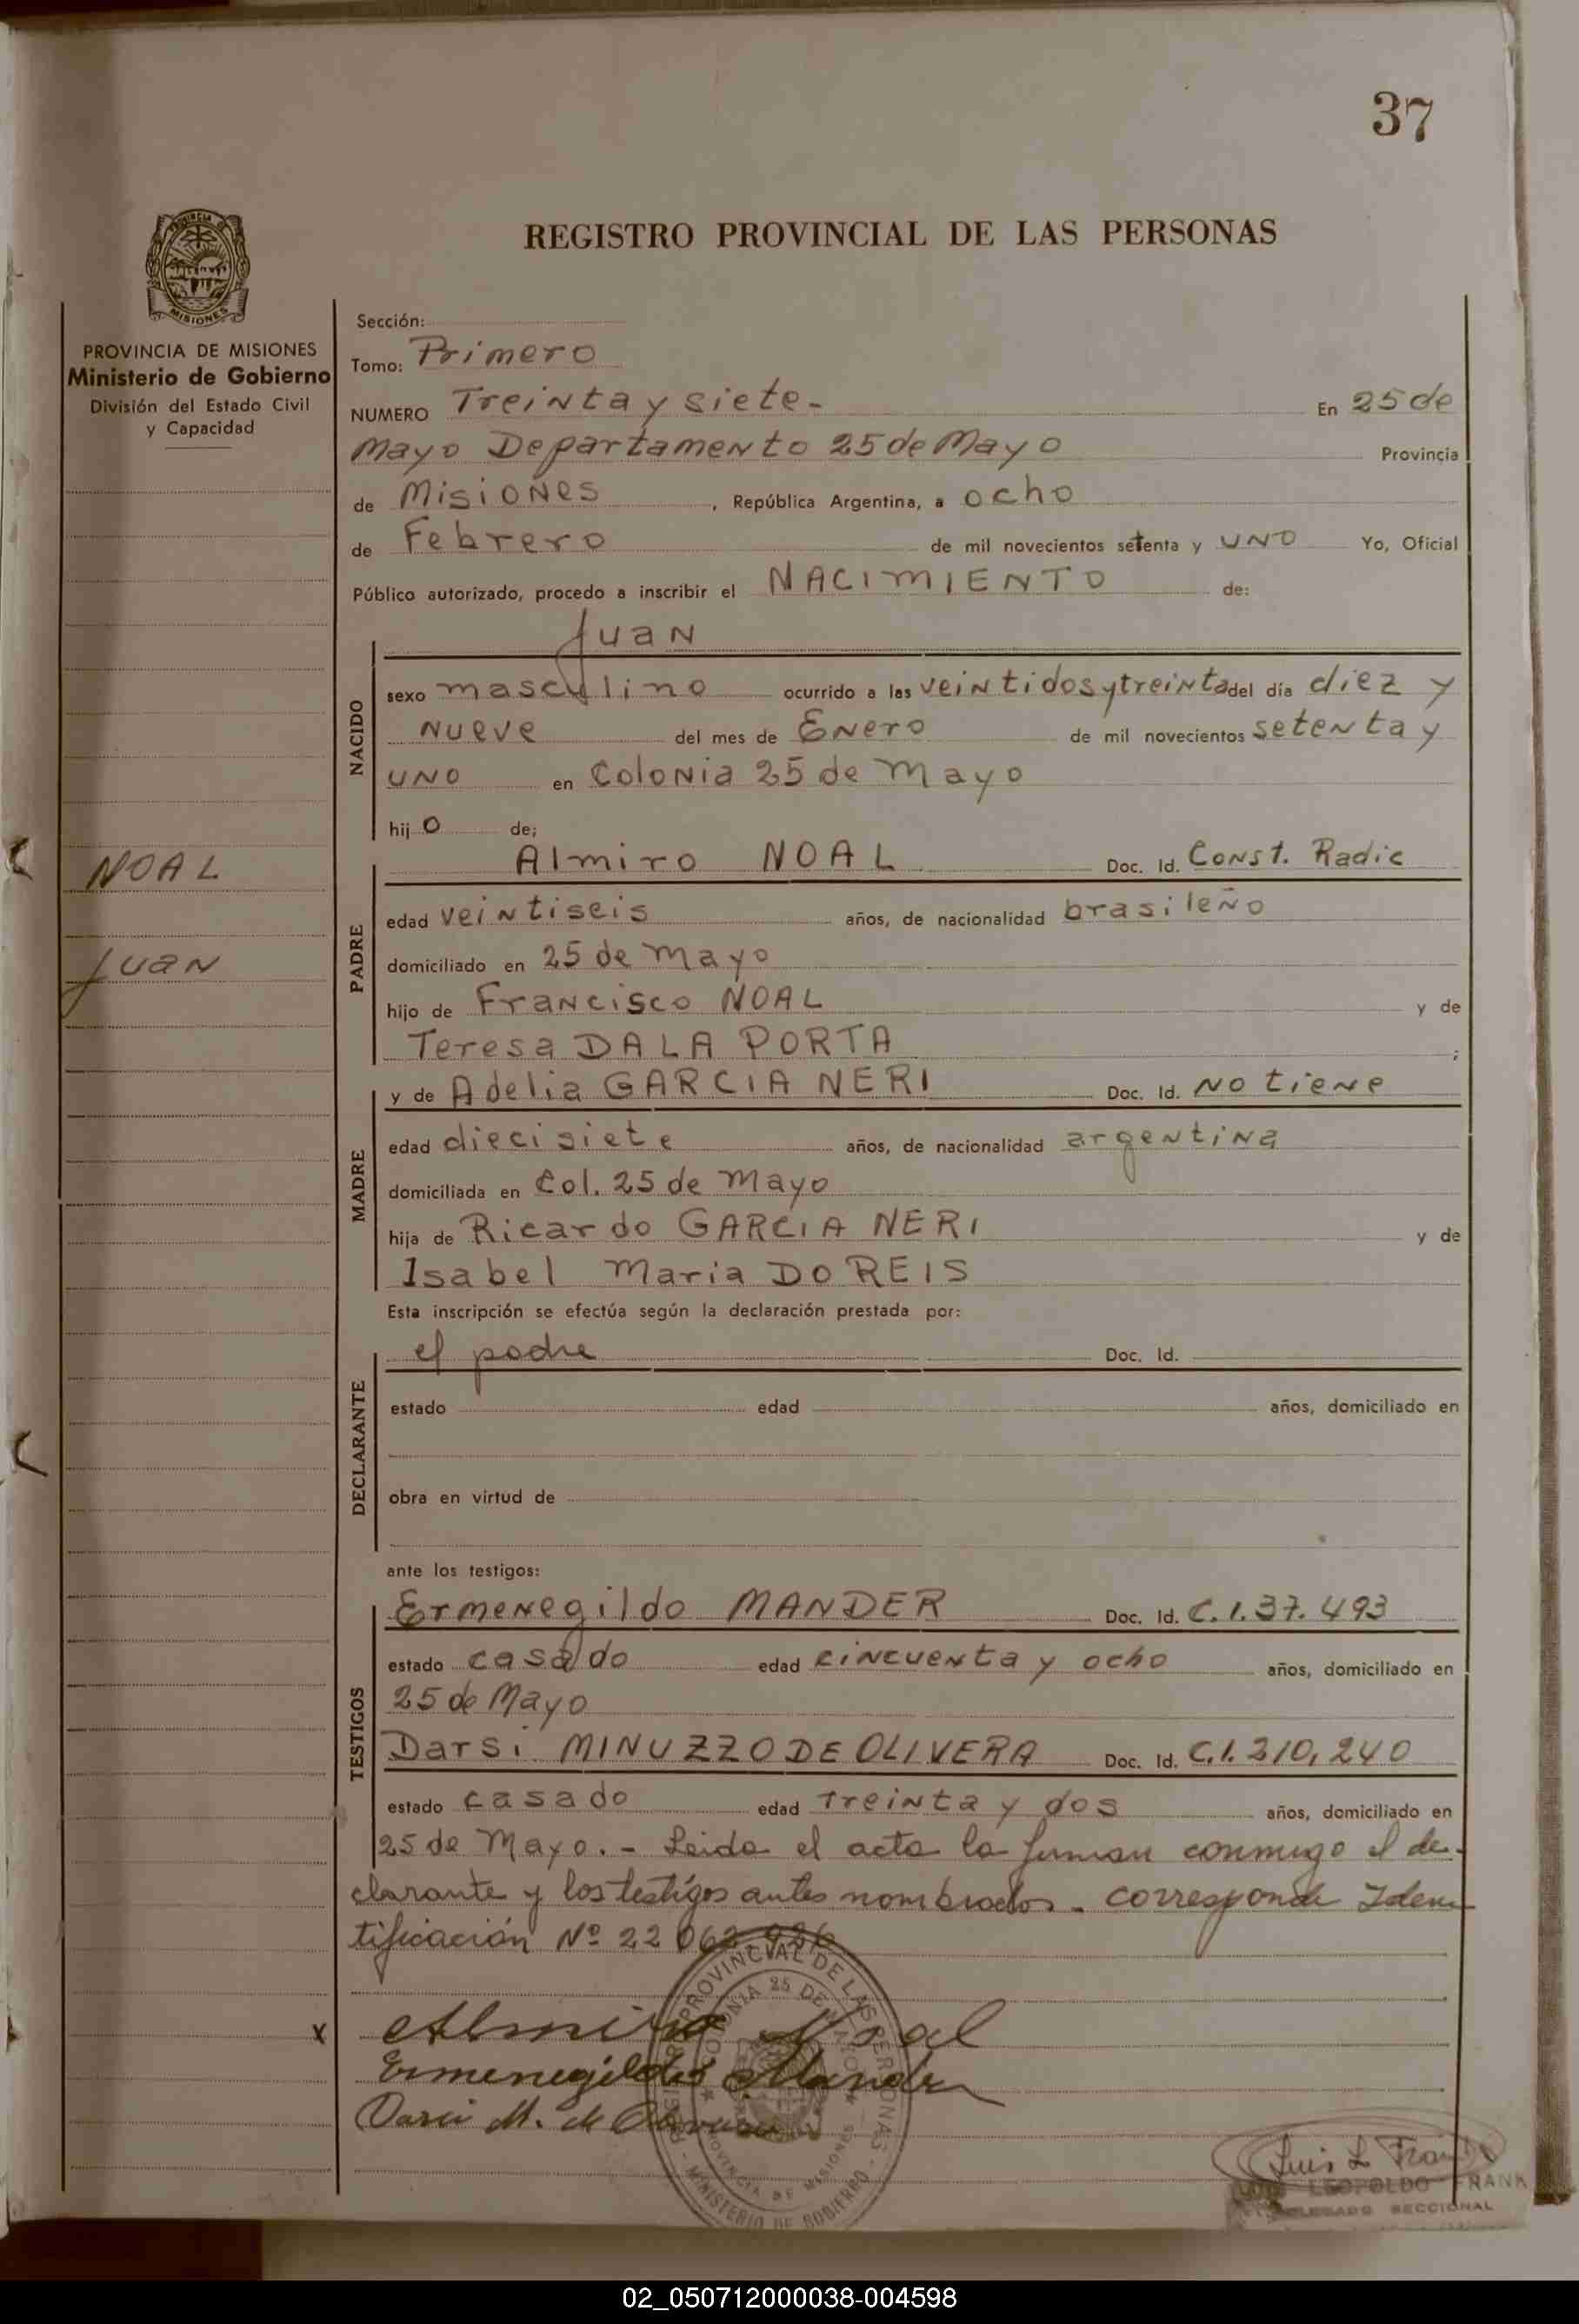 37
REGISTRO PROVINCIAL DE LAS PERSONAS
PROVINCIA
MISIONES
PROVINCIA DE MISIONES
Ministerio de Gobierno
División del Estado Civil
y Capacidad
NOAL
Juan
Sección:
Tomo: Primero
NUMERO Treinta y siete - En 25 de
Mayo Departamento 25 de Mayo Provincia
de Misiones, República Argentina, a ocho
de Febrero de mil novecientos setenta y uno Yo, Oficial
Público autorizado, procedo a inscribir el NACIMIENTO de:
Juan
NACIDO
sexo masculino ocurrido a las veintidos y treinta del día diez y
nueve del mes de Enero de mil novecientos setenta y
uno en Colonia 25 de Mayo
hijo de;
Almiro NOAL Doc. Id. Const. Radic
PADRE
edad veintiseis años, de nacionalidad brasileño
domiciliado en 25 de Mayo
hijo de Francisco NOAL y de
Teresa DALA PORTA ;
y de Adelia GARCIA NERI Doc. Id. No tiene
MADRE
edad diecisiete años, de nacionalidad argentina
domiciliada en Col. 25 de Mayo
hija de Ricardo GARCIA NERI y de
Isabel Maria DO REIS
Esta inscripción se efectúa según la declaración prestada por:
el padre Doc. Id.
DECLARANTE
estado edad años, domiciliado en
obra en virtud de
ante los testigos:
Ermenegildo MANDER Doc. Id. C.I. 37.493
TESTIGOS
estado casado edad cincuenta y ocho años, domiciliado en
25 de Mayo
Darsi MINUZZO DE OLIVERA Doc. Id. C.I. 210,240
estado casado edad treinta y dos años, domiciliado en
25 de Mayo. - Leida el acta la firman conmigo el de-
clarante y los testigos antes nombrados - corresponde Iden-
tificación Nº 22 062.926
x Almiro Noal
Ermenegildo Mander
Darci M. de
PROVINCIAL DE LAS PERSONAS
COLONIA 25 DE MAYO
PROVINCIA DE MISIONES
MINISTERIO DE GOBIERNO
Luis L Frank
LEOPOLDO FRANK
DELEGADO SECCIONAL
02_050712000038-004598